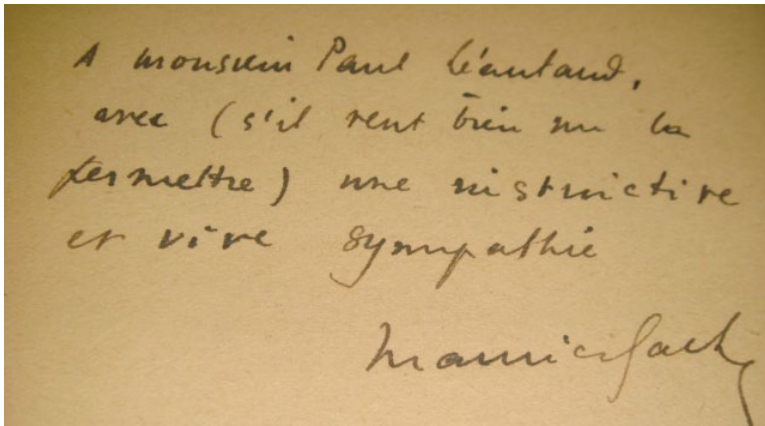 A monsieur Paul Léautaud,
avec (s'il veut bien me la
permettre) une instinctive
et vive sympathie
Maurice Sachs